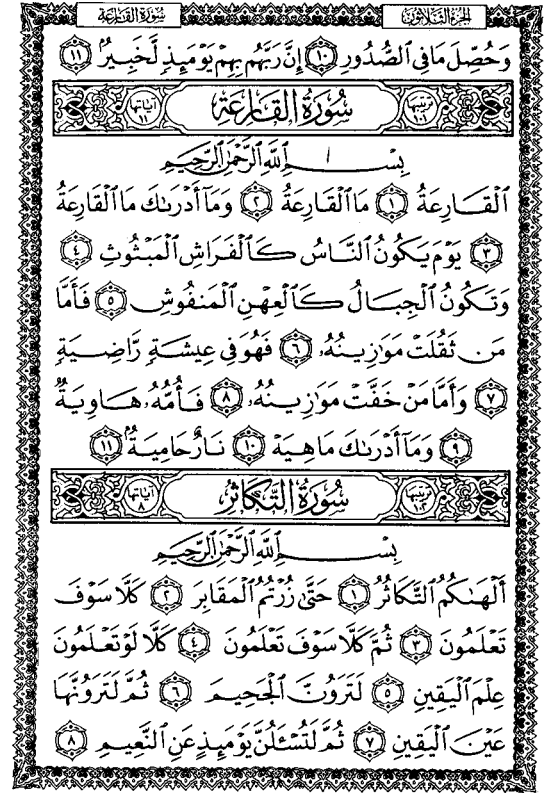 الجزء الثلاثون سورة القارعة
وَحُصِّلَ مَا فِى ٱلصُّدُورِ ١٠ إِنَّ رَبَّهُم بِهِمْ يَوْمَئِذٍ لَّخَبِيرٌ ١١
ترتيبها ١٠١ سُورَةُ القَارِعَة آياتها ١١
بِسْمِ ٱللَّهِ ٱلرَّحْمَٰنِ ٱلرَّحِيمِ
ٱلْقَارِعَةُ ١ مَا ٱلْقَارِعَةُ ٢ وَمَآ أَدْرَىٰكَ مَا ٱلْقَارِعَةُ
٣ يَوْمَ يَكُونُ ٱلنَّاسُ كَٱلْفَرَاشِ ٱلْمَبْثُوثِ ٤
وَتَكُونُ ٱلْجِبَالُ كَٱلْعِهْنِ ٱلْمَنفُوشِ ٥ فَأَمَّا
مَن ثَقُلَتْ مَوَٰزِينُهُۥ ٦ فَهُوَ فِى عِيشَةٍ رَّاضِيَةٍ
٧ وَأَمَّا مَنْ خَفَّتْ مَوَٰزِينُهُۥ ٨ فَأُمُّهُۥ هَاوِيَةٌ
٩ وَمَآ أَدْرَىٰكَ مَا هِيَهْ ١٠ نَارٌ حَامِيَةٌ ١١
ترتيبها ١٠٢ سُورَةُ التَّكَاثُر آياتها ٨
بِسْمِ ٱللَّهِ ٱلرَّحْمَٰنِ ٱلرَّحِيمِ
أَلْهَىٰكُمُ ٱلتَّكَاثُرُ ١ حَتَّىٰ زُرْتُمُ ٱلْمَقَابِرَ ٢ كَلَّا سَوْفَ
تَعْلَمُونَ ٣ ثُمَّ كَلَّا سَوْفَ تَعْلَمُونَ ٤ كَلَّا لَوْ تَعْلَمُونَ
عِلْمَ ٱلْيَقِينِ ٥ لَتَرَوُنَّ ٱلْجَحِيمَ ٦ ثُمَّ لَتَرَوُنَّهَا
عَيْنَ ٱلْيَقِينِ ٧ ثُمَّ لَتُسْـَٔلُنَّ يَوْمَئِذٍ عَنِ ٱلنَّعِيمِ ٨